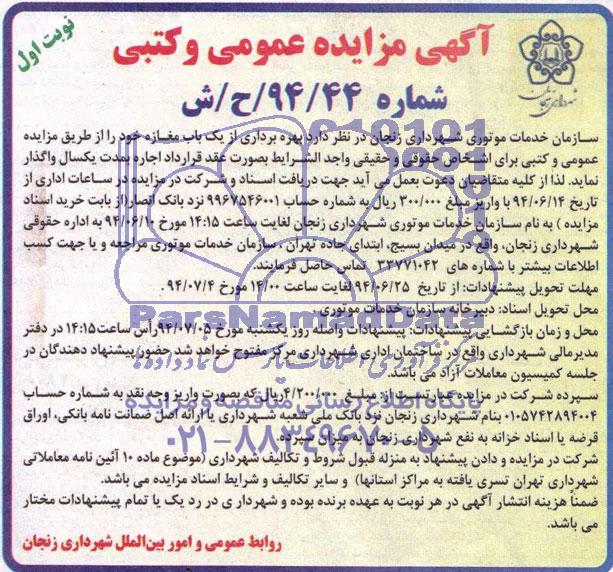 نوبت اول
آگهی مزایده عمومی و کتبی
شماره ۹۴/۴۴/ح/ش
شهرداری زنجان
سازمان خدمات موتوری شهرداری زنجان در نظر دارد بهره برداری از یک باب مغازه خود را از طریق مزایده
عمومی و کتبی برای اشخاص حقوقی و حقیقی واجد الشرایط بصورت عقد قرارداد اجاره بمدت یکسال واگذار
نماید. لذا از کلیه متقاضیان دعوت بعمل می آید جهت دریافت اسناد و شرکت در مزایده در ساعات اداری از
تاریخ ۹۴/۰۶/۱۴ با واریز مبلغ ۳۰۰/۰۰۰ ریال به شماره حساب ۹۹۶۷۵۴۶۰۰۱ نزد بانک انصار(از بابت خرید اسناد
مزایده ) به نام سازمان خدمات موتوری شهرداری زنجان لغایت ساعت ۱۴:۱۵ مورخ ۹۴/۰۶/۱۰ به اداره حقوقی
شهرداری زنجان، واقع در میدان بسیج، ابتدای جاده تهران ، سازمان خدمات موتوری مراجعه و یا جهت کسب
اطلاعات بیشتر با شماره های ۳۳۷۷۱۰۴۲ تماس حاصل فرمایند.
مهلت تحویل پیشنهادات: از تاریخ ۹۴/۰۶/۲۵ لغایت ساعت ۱۴/۰۰ مورخ ۹۴/۰۷/۴ .
محل تحویل اسناد: دبیرخانه سازمان خدمات موتوری
محل و زمان بازگشایی پیشنهادات: پیشنهادات واصله روز یکشنبه مورخ ۹۴/۰۷/۰۵ رأس ساعت ۱۴:۱۵ در دفتر
مدیرمالی شهرداری واقع در ساختمان اداری شهرداری مرکز مفتوح خواهد شد حضور پیشنهاد دهندگان در
جلسه کمیسیون معاملات آزاد می باشد.
سپرده شرکت در مزایده عبارت است از مبلغ ۴/۲۰۰/۰۰۰ ریال که بصورت واریز وجه نقد به شماره حساب
۰۱۰۵۷۴۲۸۹۴۰۰۴ بنام شهرداری زنجان نزد بانک ملی شعبه شهرداری یا ارائه اصل ضمانت نامه بانکی، اوراق
قرضه یا اسناد خزانه به نفع شهرداری زنجان به میزان سپرده.
شرکت در مزایده و دادن پیشنهاد به منزله قبول شروط و تکالیف شهرداری (موضوع ماده ۱۰ آئین نامه معاملاتی
شهرداری تهران تسری یافته به مراکز استانها) و سایر تکالیف و شرایط اسناد مزایده می باشد.
ضمناً هزینه انتشار آگهی در هر نوبت به عهده برنده بوده و شهرداری در رد یک یا تمام پیشنهادات مختار
می باشد.
روابط عمومی و امور بین‌الملل شهرداری زنجان
ParsNamadData
۰۲۱-۸۸۳۴۹۶۷۰-۵